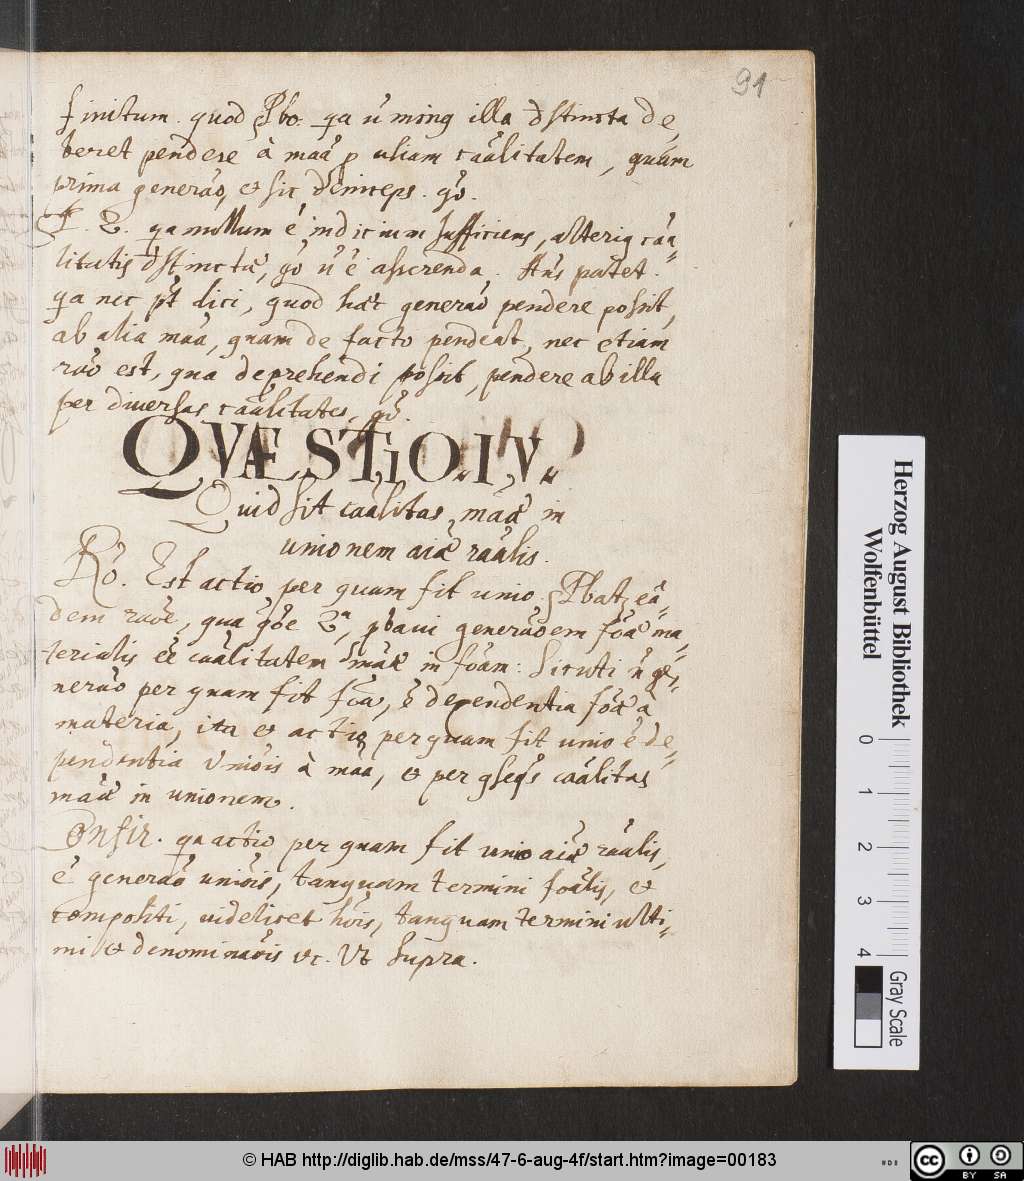 91
finitum. quod Pbo. qa ũ minq illa dstincta de,
beret pendere à maã p aliam caãlitatem, quam
prima generão, & sic deinceps. gõ.
P. 2. qa nullum é indicium sufficiens, alteriq caã,,
litatis dstinctæ, gõ ũ é asserenda. Añs patet.
qa nec põt dici, quod hæc generão pendere possit,
ab alia maã, quam de facto pendeat, nec etiam
rão est, qua deprehendi possit, pendere ab illa
per diversas caãlitates, gõ.
QVÆSTIO. IV.
Quid sit caãlitas maæ in
unionem aiæ raãlis.
Rõ. Est actio per quam fit unio. Pbat, eã,,
dem raõe, qua qõe 2ª, pbavi generãoem foæ ma,,
terialis eé caãlitatem maæ in foam: Sicuti ñ ge,,
nerão per quam fit foã, é dependentia foæ à
materia, ita & actio per quam fit unio é de,,
pendentia uniõis à maã, & per qseqs caãlitas
maæ in unionem.
Confir. qa actio per quam fit unio aiæ raãlis,
é generão uniõis, tanquam termini foãlis, &
compositi, videlicet hõis, tanquam termini ulti,,
mi & denominaõis &c. Ut supra.
Herzog August Bibliothek
Wolfenbüttel
0
1
2
3
4
Gray Scale
© HAB http://diglib.hab.de/mss/47-6-aug-4f/start.htm?image=00183
HAB
cc
BY SA